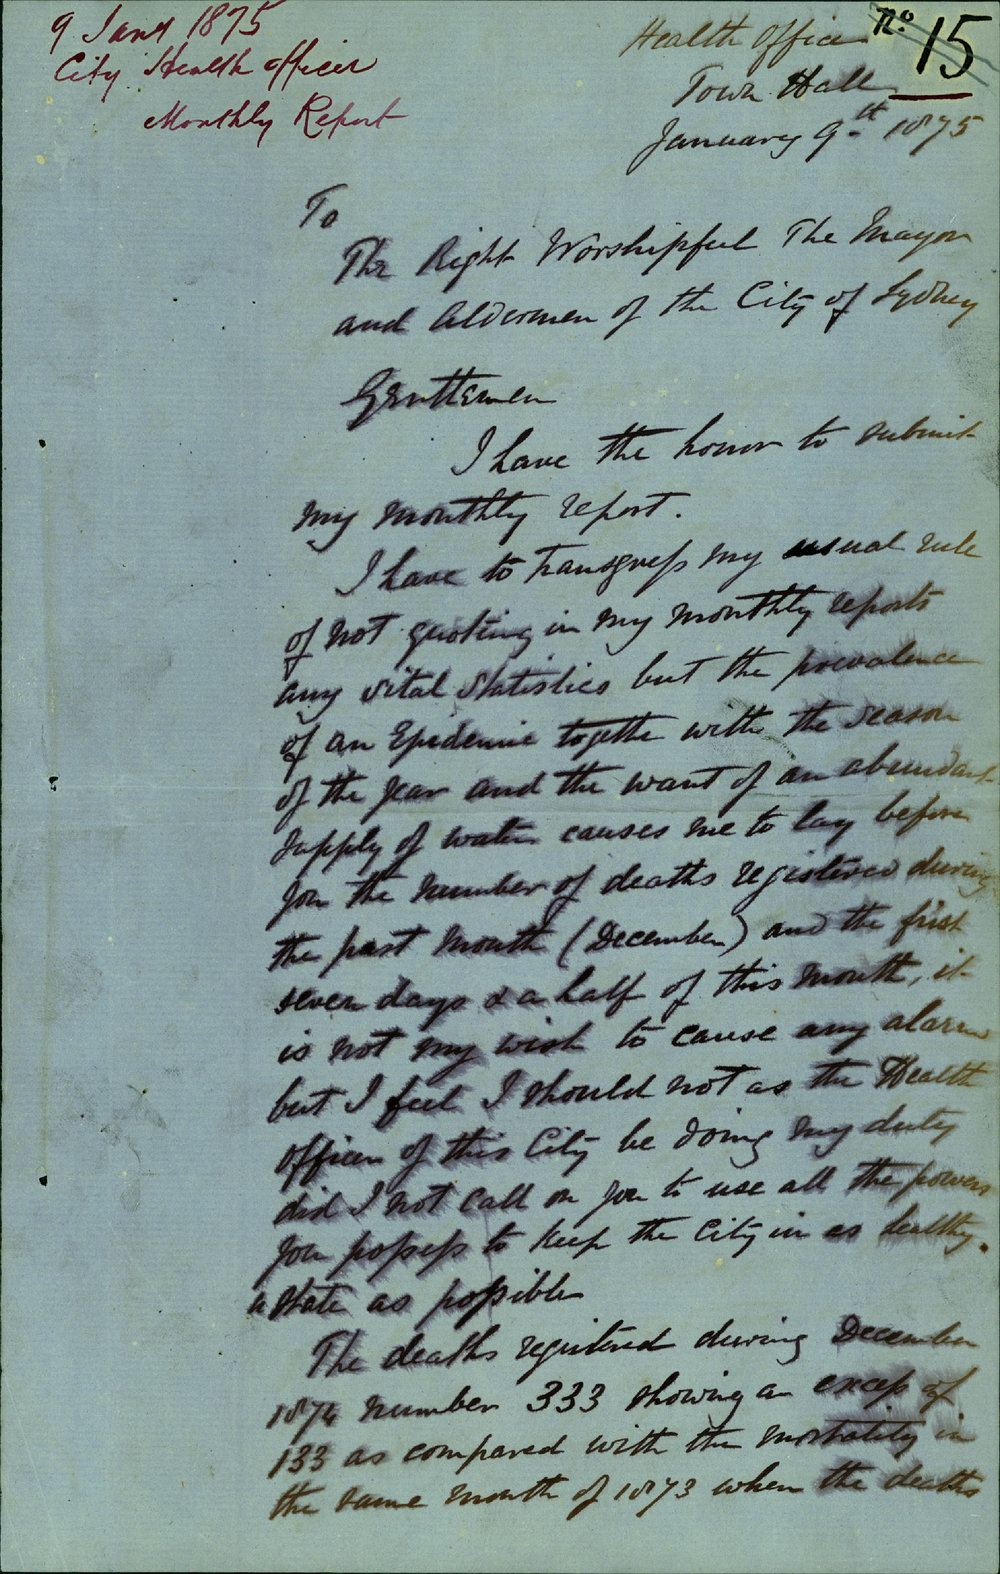 9 Jany 1875
City Health Officer
Monthly Report
No. 15
Health Office
Town Hall
January 9th 1875
To
The Right Worshipful The Mayor
and Aldermen of the City of Sydney
Gentlemen
I have the honor to submit
my monthly report.
I have to transgress my usual rule
of not quoting in my monthly reports
any vital statistics but the prevalence
of an Epidemic together with the season
of the year and the want of an abundant
supply of water causes me to lay before
you the number of deaths registered during
the past month (December) and the first
seven days & a half of this month, it
is not my wish to cause any alarm
but I feel I should not as the Health
Officer of this City be doing my duty
did I not call on you to use all the powers
you possess to keep the City in as healthy
a state as possible
The deaths registered during December
1874 number 333 showing an excess of
133 as compared with the mortality in
the same month of 1873 when the deaths